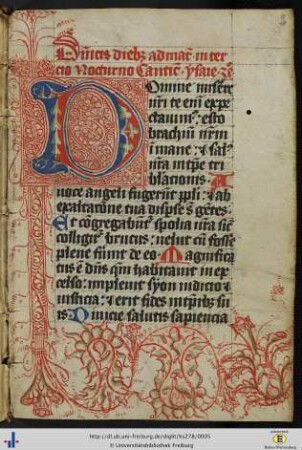 Dñicis dieb⁊ ad mat̃. in ter
cio Nocturno Cantic̃ ysaie
Domine miserē
nr̄i te enī expe
ctauim⁹: esto
brachiū nr̄m
i mane: ⁊ sal⁹
nr̄a in tp̄e tri
blacionis. A
uoce angeli fugierūt ppl̄i: ⁊ ab
exaltatione tua disꝑse s̄ gētes.
Et cōgregabūt spolia vr̄a sic̄
colligit̃ brucus: uelut cū fosse
plene fūint de eo. Magnifica
tus ē dūs qm̄ habitauit in ex
celso: impleuit syon iudicio ⁊
iusticia: ⁊ erit fides in tp̄ib⁊ tu
is. Diuicie salutis sapiencia
http://dl.ub.uni-freiburg.de/diglit/hs278/0005
© Universitätsbibliothek Freiburg